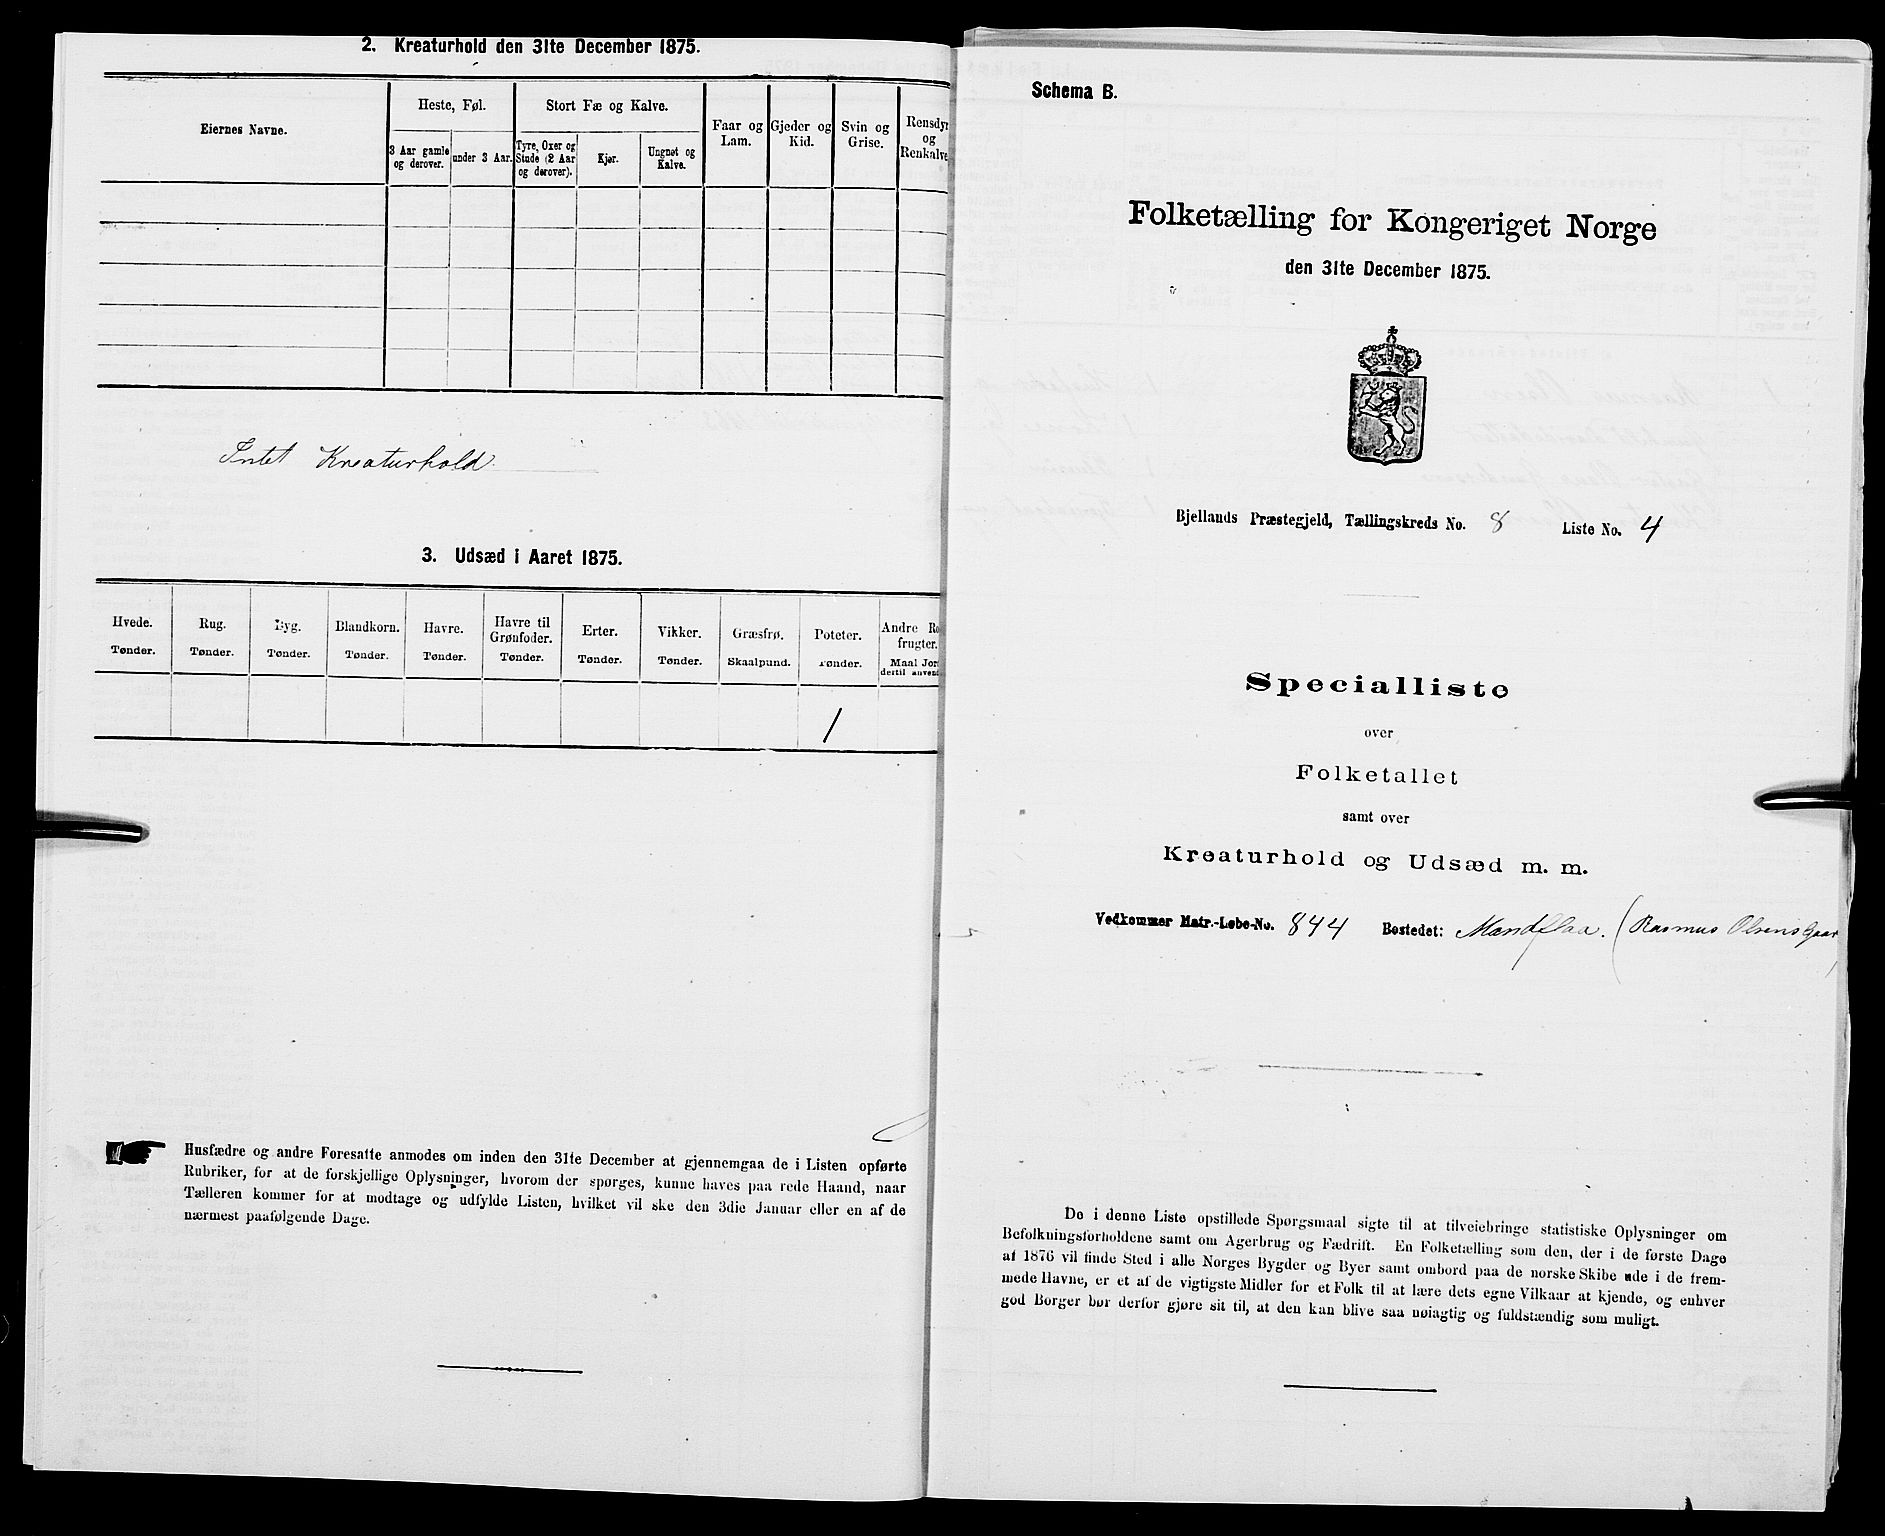 2. Kreaturhold den 31te December 1875.
Eiernes Navne.
Heste, Føl.
Stort Fæ og Kalve.
Faar og
Lam.
Gjeder og
Kid.
Svin og
Grise.
Rensdyr
og
Renkalve
3 Aar gamle
og derover.
under 3 Aar.
Tyre, Oxer og
Stude (2 Aar
og derover).
Kjør.
Ungnøt og
Kalve.
Intet Kreaturhold.
3. Udsæd i Aaret 1875.
Hvede.
Tønder.
Rug.
Tønder.
Byg.
Tønder.
Blandkorn.
Tønder.
Havre.
Tønder.
Havre til
Grønfoder.
Tønder.
Erter.
Tønder.
Vikker.
Tønder.
Græsfrø.
Skaalpund.
Poteter.
Tønder.
Andre Ro
frugter.
Maal Jor
dertil anvend
1
Husfædre og andre Foresatte anmodes om inden den 31te December at gjennemgaa de i Listen opførte
Rubriker, for at de forskjellige Oplysninger, hvorom der spørges, kunne haves paa rede Haand, naar
Tælleren kommer for at modtage og udfylde Listen, hvilket vil ske den 3die Januar eller en af de
nærmest paafølgende Dage.
Schema B.
Folketælling for Kongeriget Norge
den 31te December 1875.
Bjellands Præstegjeld, Tællingskreds No. 8 Liste No. 4
Specialliste
over
Folketallet
samt over
Kreaturhold og Udsæd m. m.
Vedkommer Matr.-Løbe-No. 844 Bostedet: Mandflaa. (Rasmus Olsens Gaar)
De i denne Liste opstillede Spørgsmaal sigte til at tilveiebringe statistiske Oplysninger om
Befolkningsforholdene samt om Agerbrug og Fædrift. En Folketælling som den, der i de første Dage
af 1876 vil finde Sted i alle Norges Bygder og Byer samt ombord paa de norske Skibe ude i de frem-
mede Havne, er et af de vigtigste Midler for et Folk til at lære dets egne Vilkaar at kjende, og enhver
god Borger bør derfor gjøre sit til, at den kan blive saa nøiagtig og fuldstændig som muligt.